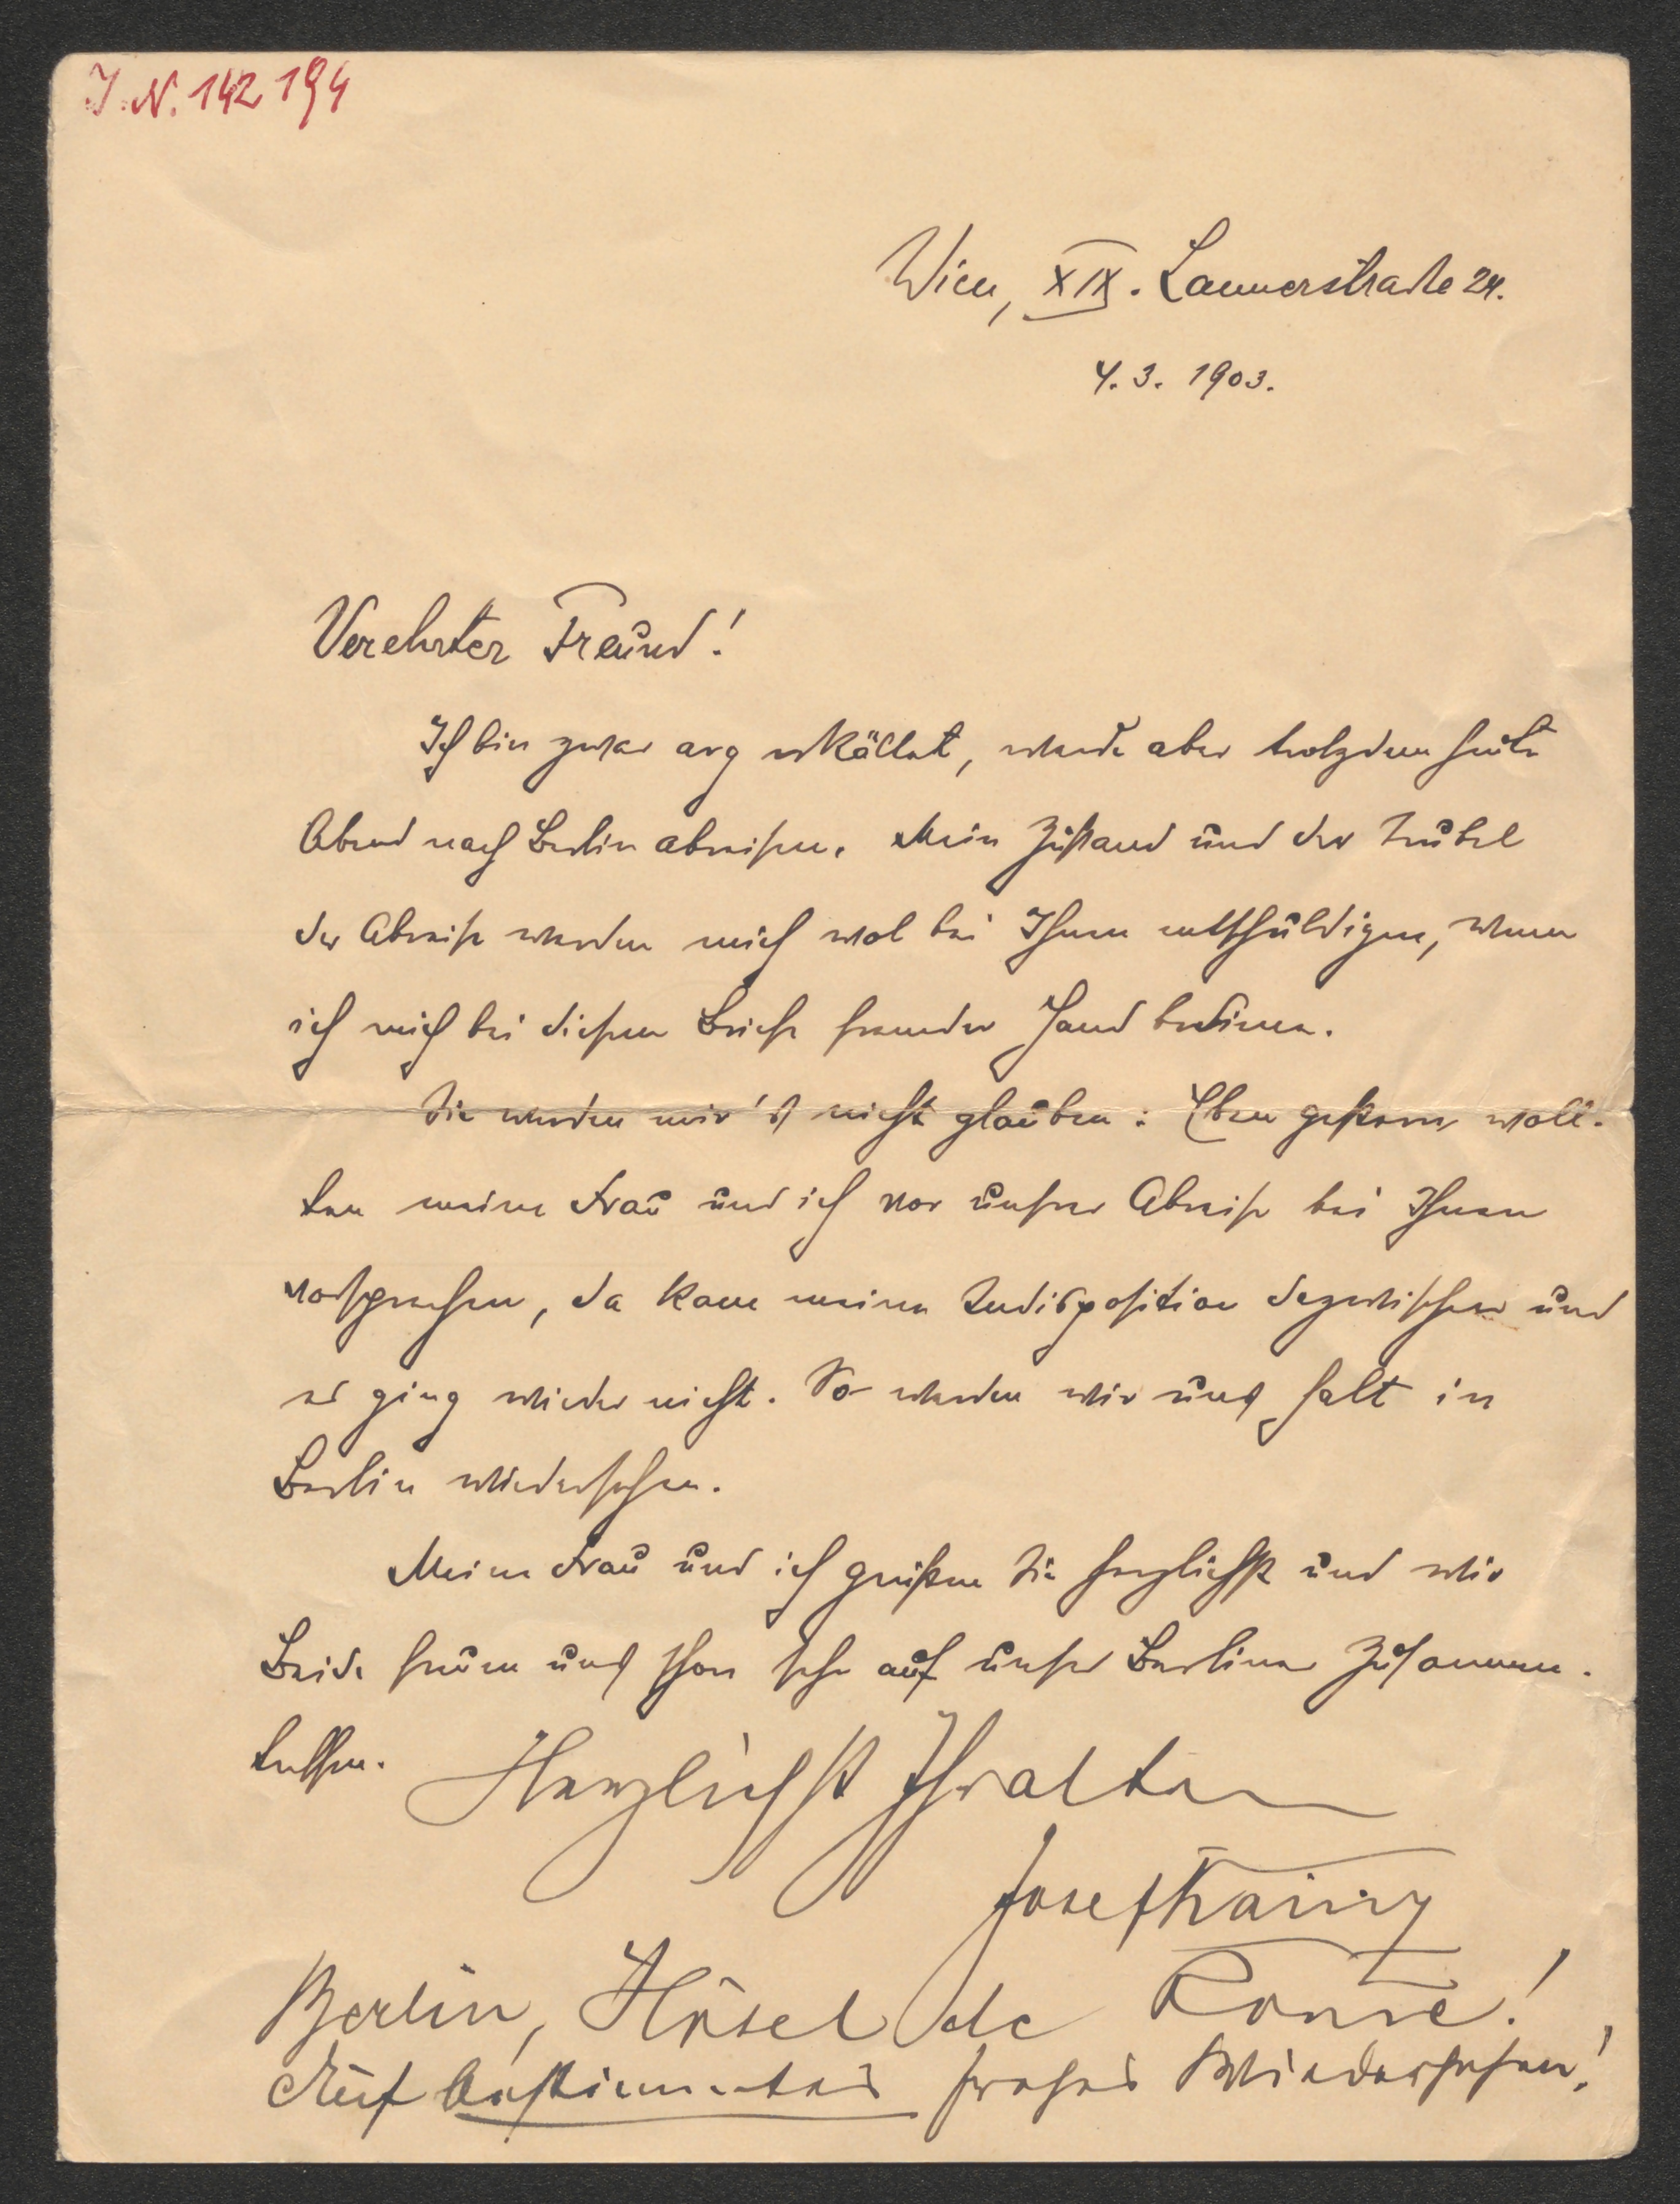 I. N. 142194
Wien, XIX. Lannerstraße 24.
4. 3. 1903.
Verehrter Freund!
Ich bin zwar arg erkältet, werde aber trotzdem heute
Abend nach Berlin abreisen. Mein Zustand und der Trubel
der Abreise werden mich wol bei Ihnen entschuldigen, wenn
ich mich bei diesem Briefe fremder Hand bediene.
Sie werden mir's nicht glauben: Eben gestern woll-
ten meine Frau und ich vor unsrer Abreise bei Ihnen
vorsprechen, da kam meine Indisposition dazwischen und
es ging wieder nicht. So werden wir uns halt in
Berlin wiedersehen.
Meine Frau und ich grüßen Sie herzlichst und wir
Beide freuen uns schon sehr auf unser Berliner Zusammen-
treffen. Herzlichst Ihr alter
Josef Kainz
Berlin, Hôtel de Rome!
Auf bestimmtes frohes Wiedersehen!